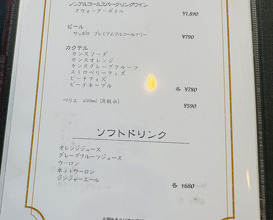 ノンアルコールスパークリングワイン
¥1,890
ビール
サッポロ プレミアムアルコールフリー ¥790
カクテル
カシスソーダ
カシスオレンジ
カシスグレープフルーツ
ピーチフィズ
ピーチネーブル 各 ¥780
ペリエ ¥590
ソフトドリンク
オレンジジュース
グレープフルーツジュース
ウーロン
ホットウーロン
ジンジャーエール 各 ¥680